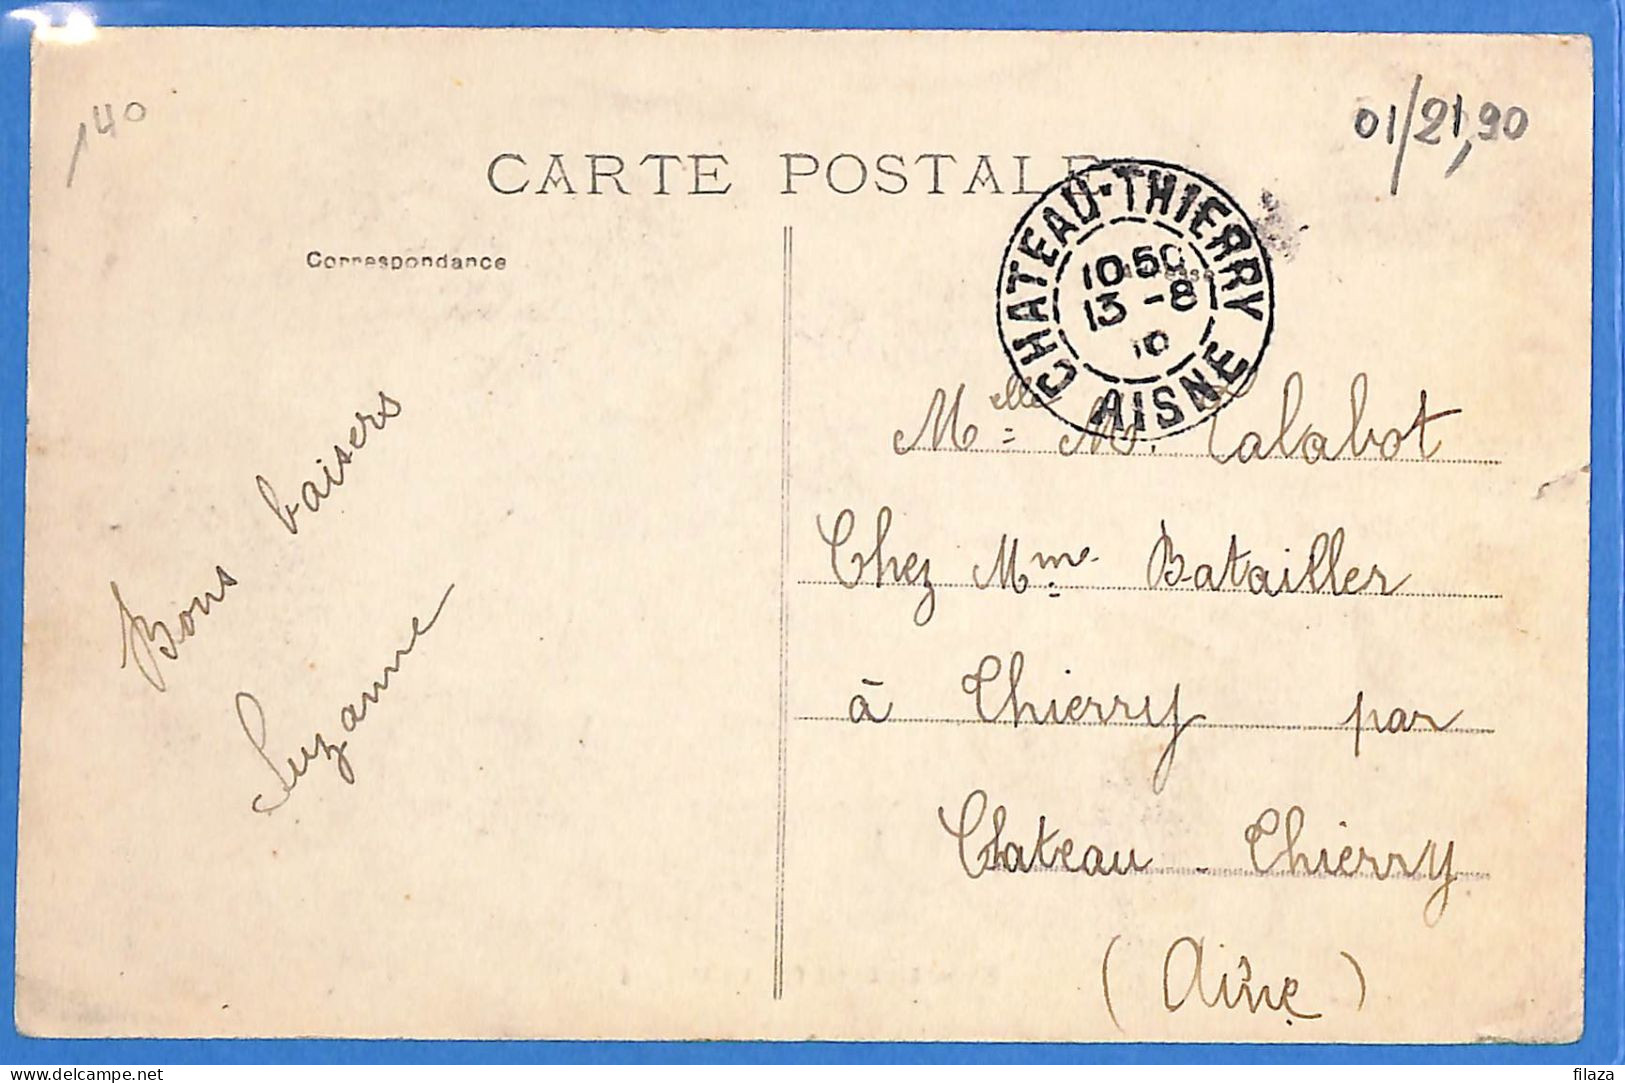 140
01/21,90
CARTE POSTALE
CHATEAU-THIERRY
10 50
13 -8
10
AISNE
Correspondance
Bons baisers
Suzanne
Melle M. Calabot
Chez Mme Batailler
à Thierry par
Chateau-Thierry
(Aisne)
filaza